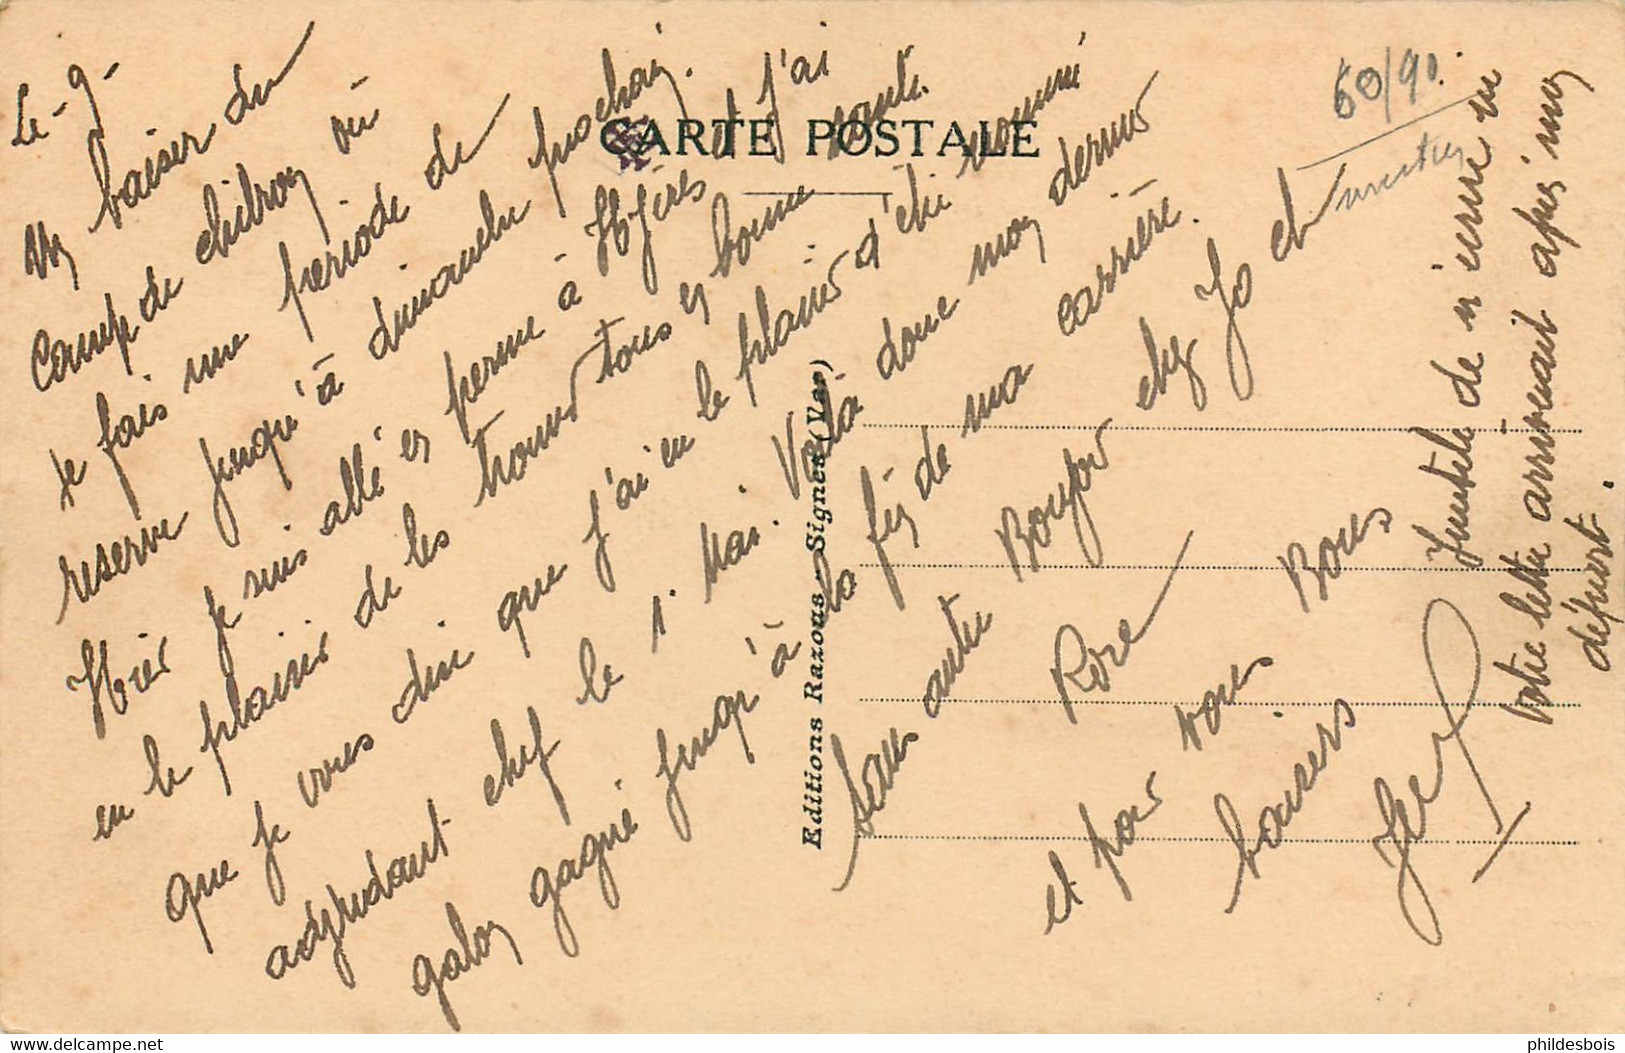 Le - 9 -
Un baiser du
camp de chibron où
je fais une période de
reserve jusqu'à dimanche prochain.
Hier je suis allé en perme à Hyères et j'ai
eu le plaisir de les trouver tous en bonne santé.
que je vous dire que j'ai eu le plaisir d'être nommé
adjudant chef le 1. Mai. Voilà donc mon dernier
galon gagné jusqu'à la fin de ma carrière.
Sans autre Bonjour chez Jo et
Rose
et pour vous Bons
baisers
Inutile de m'écrire ici
votre lettre arriverait après mon
départ.
CARTE POSTALE
Editions Razous - Signes (Var)
60/90.
phildesbois